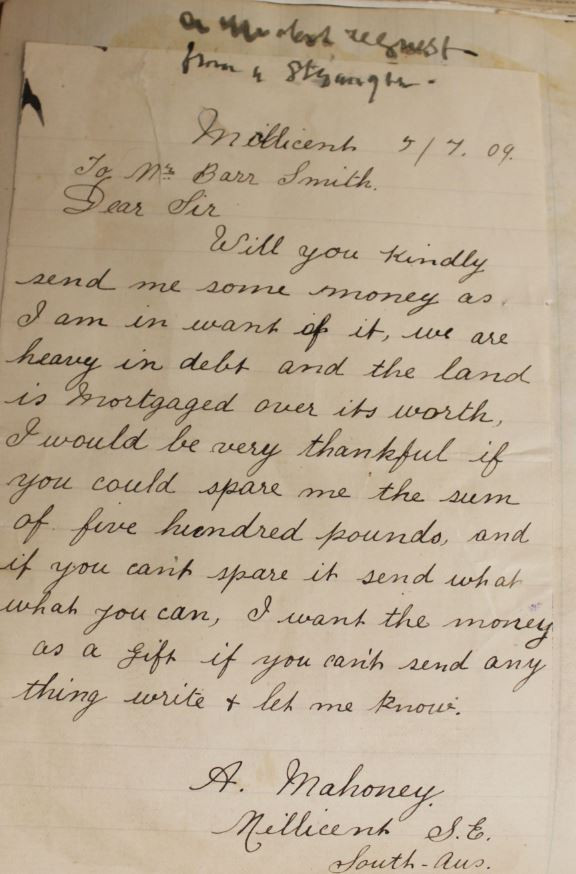 a modest request
from a stranger.
Millicent 5/7.09.
To Mr Barr Smith.
Dear Sir
Will you kindly
send me some money as
I am in want of it, we are
heavy in debt and the land
is Mortgaged over its worth,
I would be very thankful if
you could spare me the sum
of five hundred pounds, and
if you can't spare it send what
what you can, I want the money
as a gift if you can't send any
thing write + let me know.
A. Mahoney.
Millicent S.E.
South-Aus.